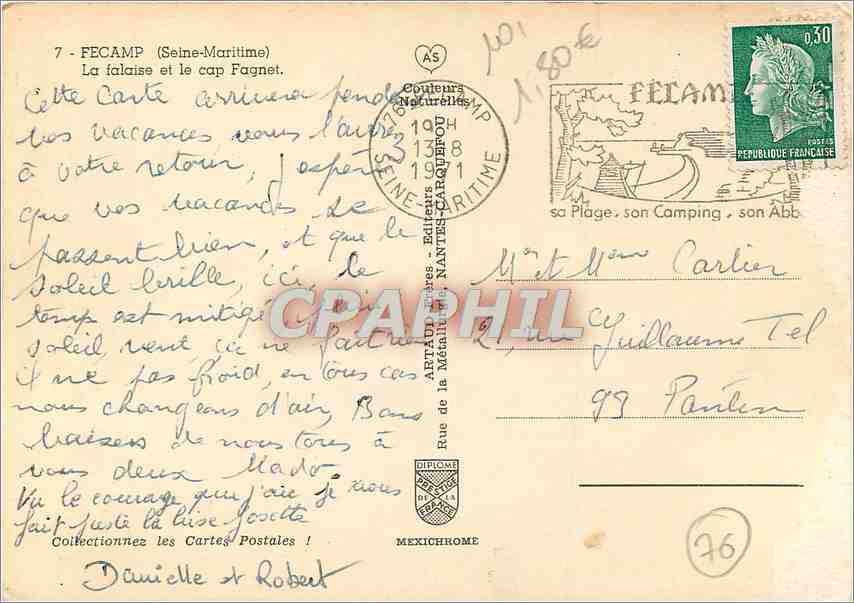 7 - FECAMP (Seine-Maritime)
La falaise et le cap Fagnet.
Cette Carte arrivera
vos vacances vous l'aurez
à votre retour, j'espère
que vos vacances se
passent bien, et que le
soleil brille, ici, le
temps est mitigé,
soleil, vent, ça ne fait rien
il ne pas froid, en tous cas
nous changeons d'air, Bons
baisers de nous tous à
vous deux Mado
Vu le courage que j'aie je vous
fait juste la bise Josette
Collectionnez les Cartes Postales !
Danielle et Robert
AS
Couleurs
Naturelles
101
1,80€
76 FECAMP
19H
13-8
1971
SEINE-MARITIME
FÉCAMP
sa Plage, son Camping, son Abb
0,30
POSTES
REPUBLIQUE FRANÇAISE
ARTAUD Frères - Editeurs
Rue de la Métallurgie, NANTES-CARQUEFOU
CPAPHIL
Mr et Mme Carlier
21, rue Guillaume Tel
93 Pantin
DIPLOME
PRESTIGE
DE LA
FRANCE
MEXICHROME
76